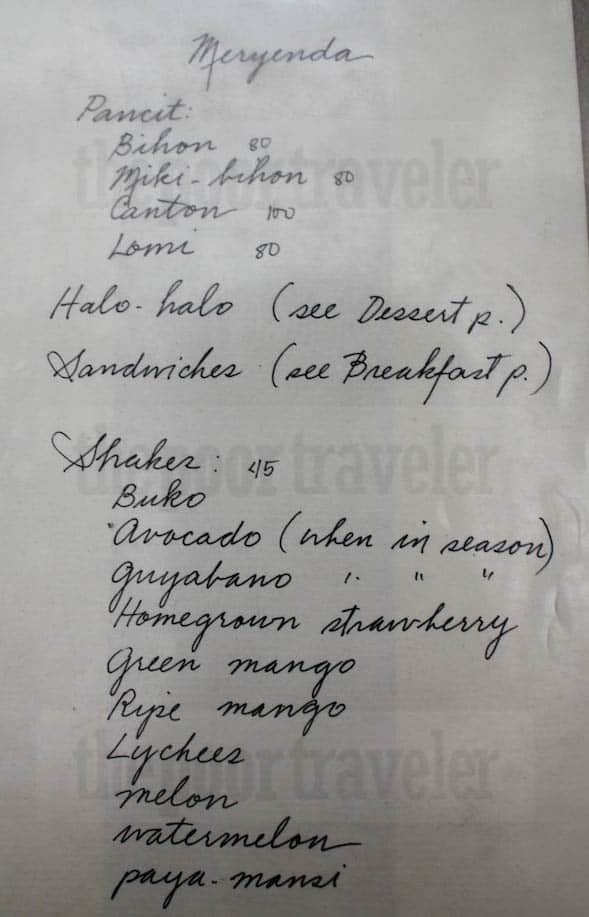 Meryenda
Pancit:
Bihon 80
Miki-bihon 80
Canton 100
Lomi 80
Halo-halo (see Dessert p.)
Sandwiches (see Breakfast p.)
Shakes: 45
Buko
Avocado (when in season)
Guyabano " " "
Homegrown strawberry
Green mango
Ripe mango
Lychees
melon
watermelon
paya-mansi
thepoortraveler
thepoortraveler
thepoortraveler